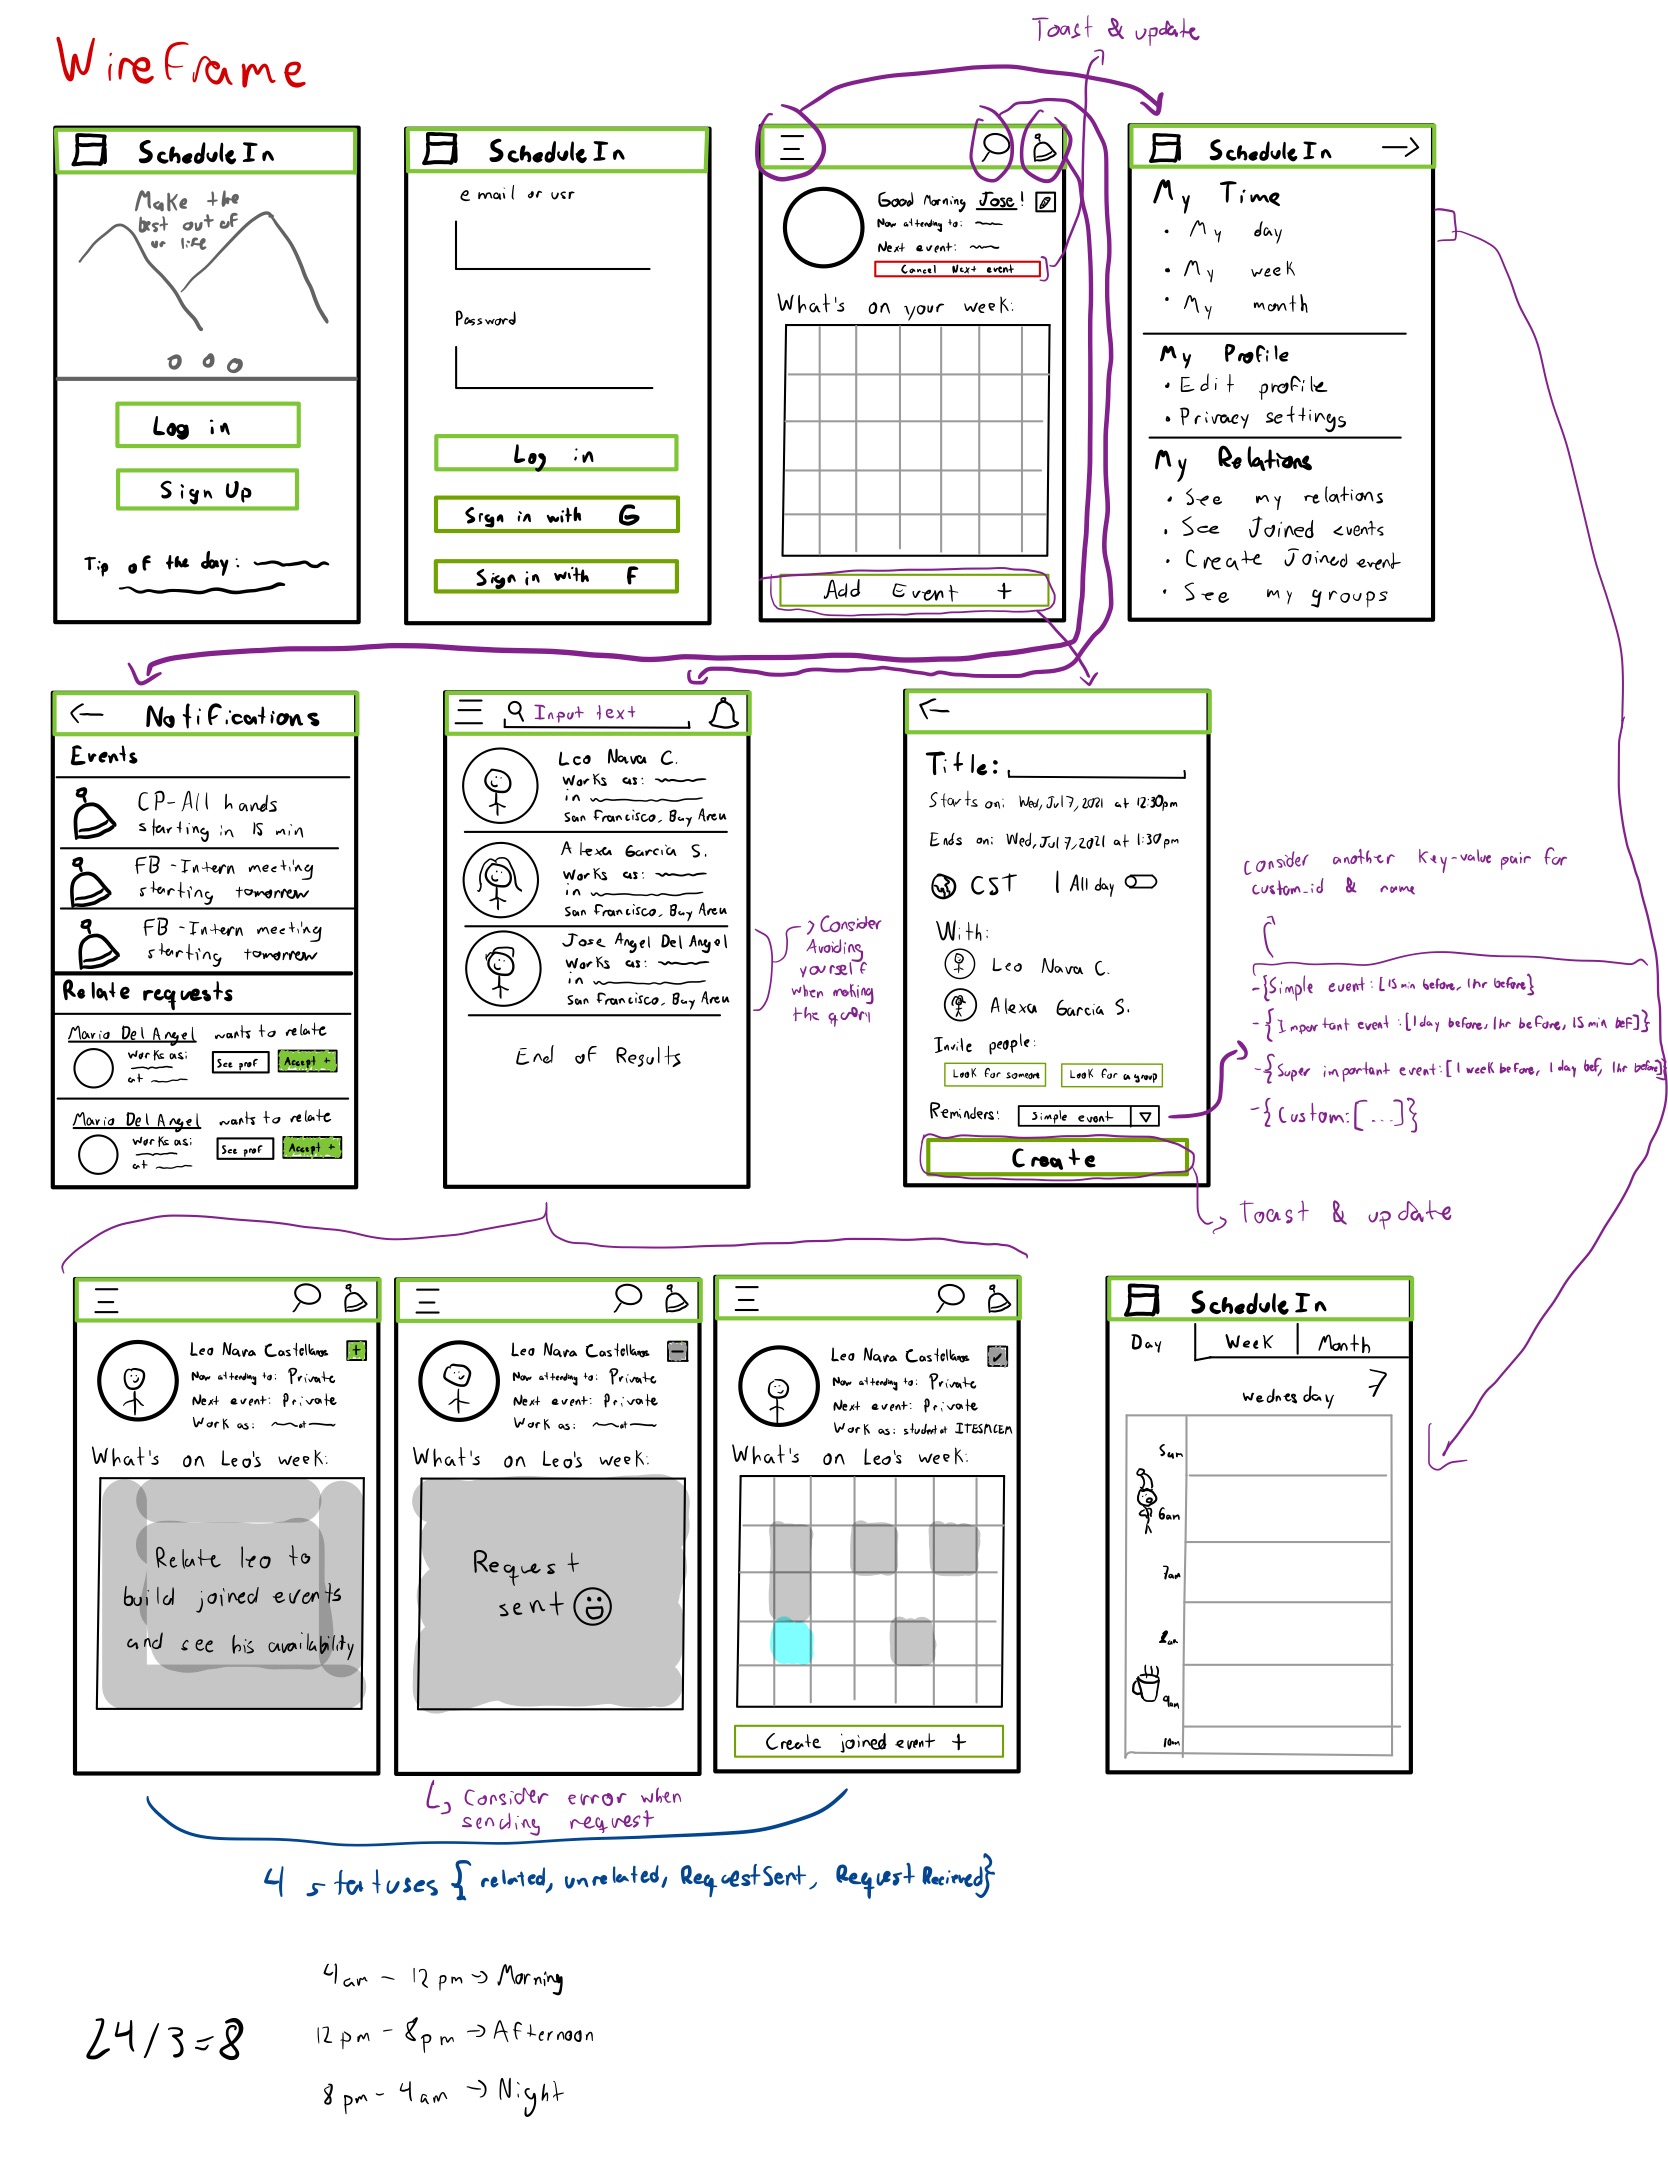 WireFrame
Toast & update
ScheduleIn
Make the
best out of
ur life
Log in
Sign Up
Tip of the day:
ScheduleIn
email or usr
Password
Log in
Sign in with G
Sign in with F
Good Morning Jose!
Now attending to:
Next event:
Cancel Next event
What's on your week:
Add Event +
ScheduleIn
My Time
• My day
• My week
• My month
My Profile
• Edit profile
• Privacy settings
My Relations
• See my relations
• See Joined events
• Create Joined event
• See my groups
Notifications
Events
CP-All hands
starting in 15 min
FB-Intern meeting
starting tomorrow
FB-Intern meeting
starting tomorrow
Relate requests
Mario Del Angel wants to relate
works as:
at
See prof
Accept +
Mario Del Angel wants to relate
works as:
at
See prof
Accept +
Input text
Leo Nava C.
works as:
in
San Francisco, Bay Area
Alexa Garcia S.
works as:
in
San Francisco, Bay Area
Jose Angel Del Angel
works as:
in
San Francisco, Bay Area
End of Results
Consider
Avoiding
yourself
when making
the query
Title:
Starts on: Wed, Jul 7, 2021 at 12:30pm
Ends on: Wed, Jul 7, 2021 at 1:30pm
CST | All day
With:
Leo Nava C.
Alexa Garcia S.
Invite people:
Look for someone
Look for a group
Reminders: Simple event
Create
Consider another Key-value pair for
custom_id & name
-{Simple event:[15 min before, 1hr before}
-{Important event:[1day before, 1hr before, 15 min bef]}
-{Super important event:[1 week before, 1 day bef, 1hr before]}
-{Custom:[...]}
Toast & update
Leo Nava Castellanos +
Now attending to: Private
Next event: Private
Work as: at
What's on Leo's week:
Relate leo to
build joined events
and see his availability
Leo Nava Castellanos -
Now attending to: Private
Next event: Private
Work as: at
What's on Leo's week:
Request
sent
Consider error when
sending request
Leo Nava Castellanos
Now attending to: Private
Next event: Private
Work as: student at ITESMCEM
What's on Leo's week:
Create joined event +
ScheduleIn
Day | Week | Month
wednesday
5am
6am
7am
8am
9am
10am
4 statuses {related, unrelated, RequestSent, RequestRecieved}
24/3=8
4am - 12pm → Morning
12pm - 8pm → Afternoon
8pm - 4am → Night